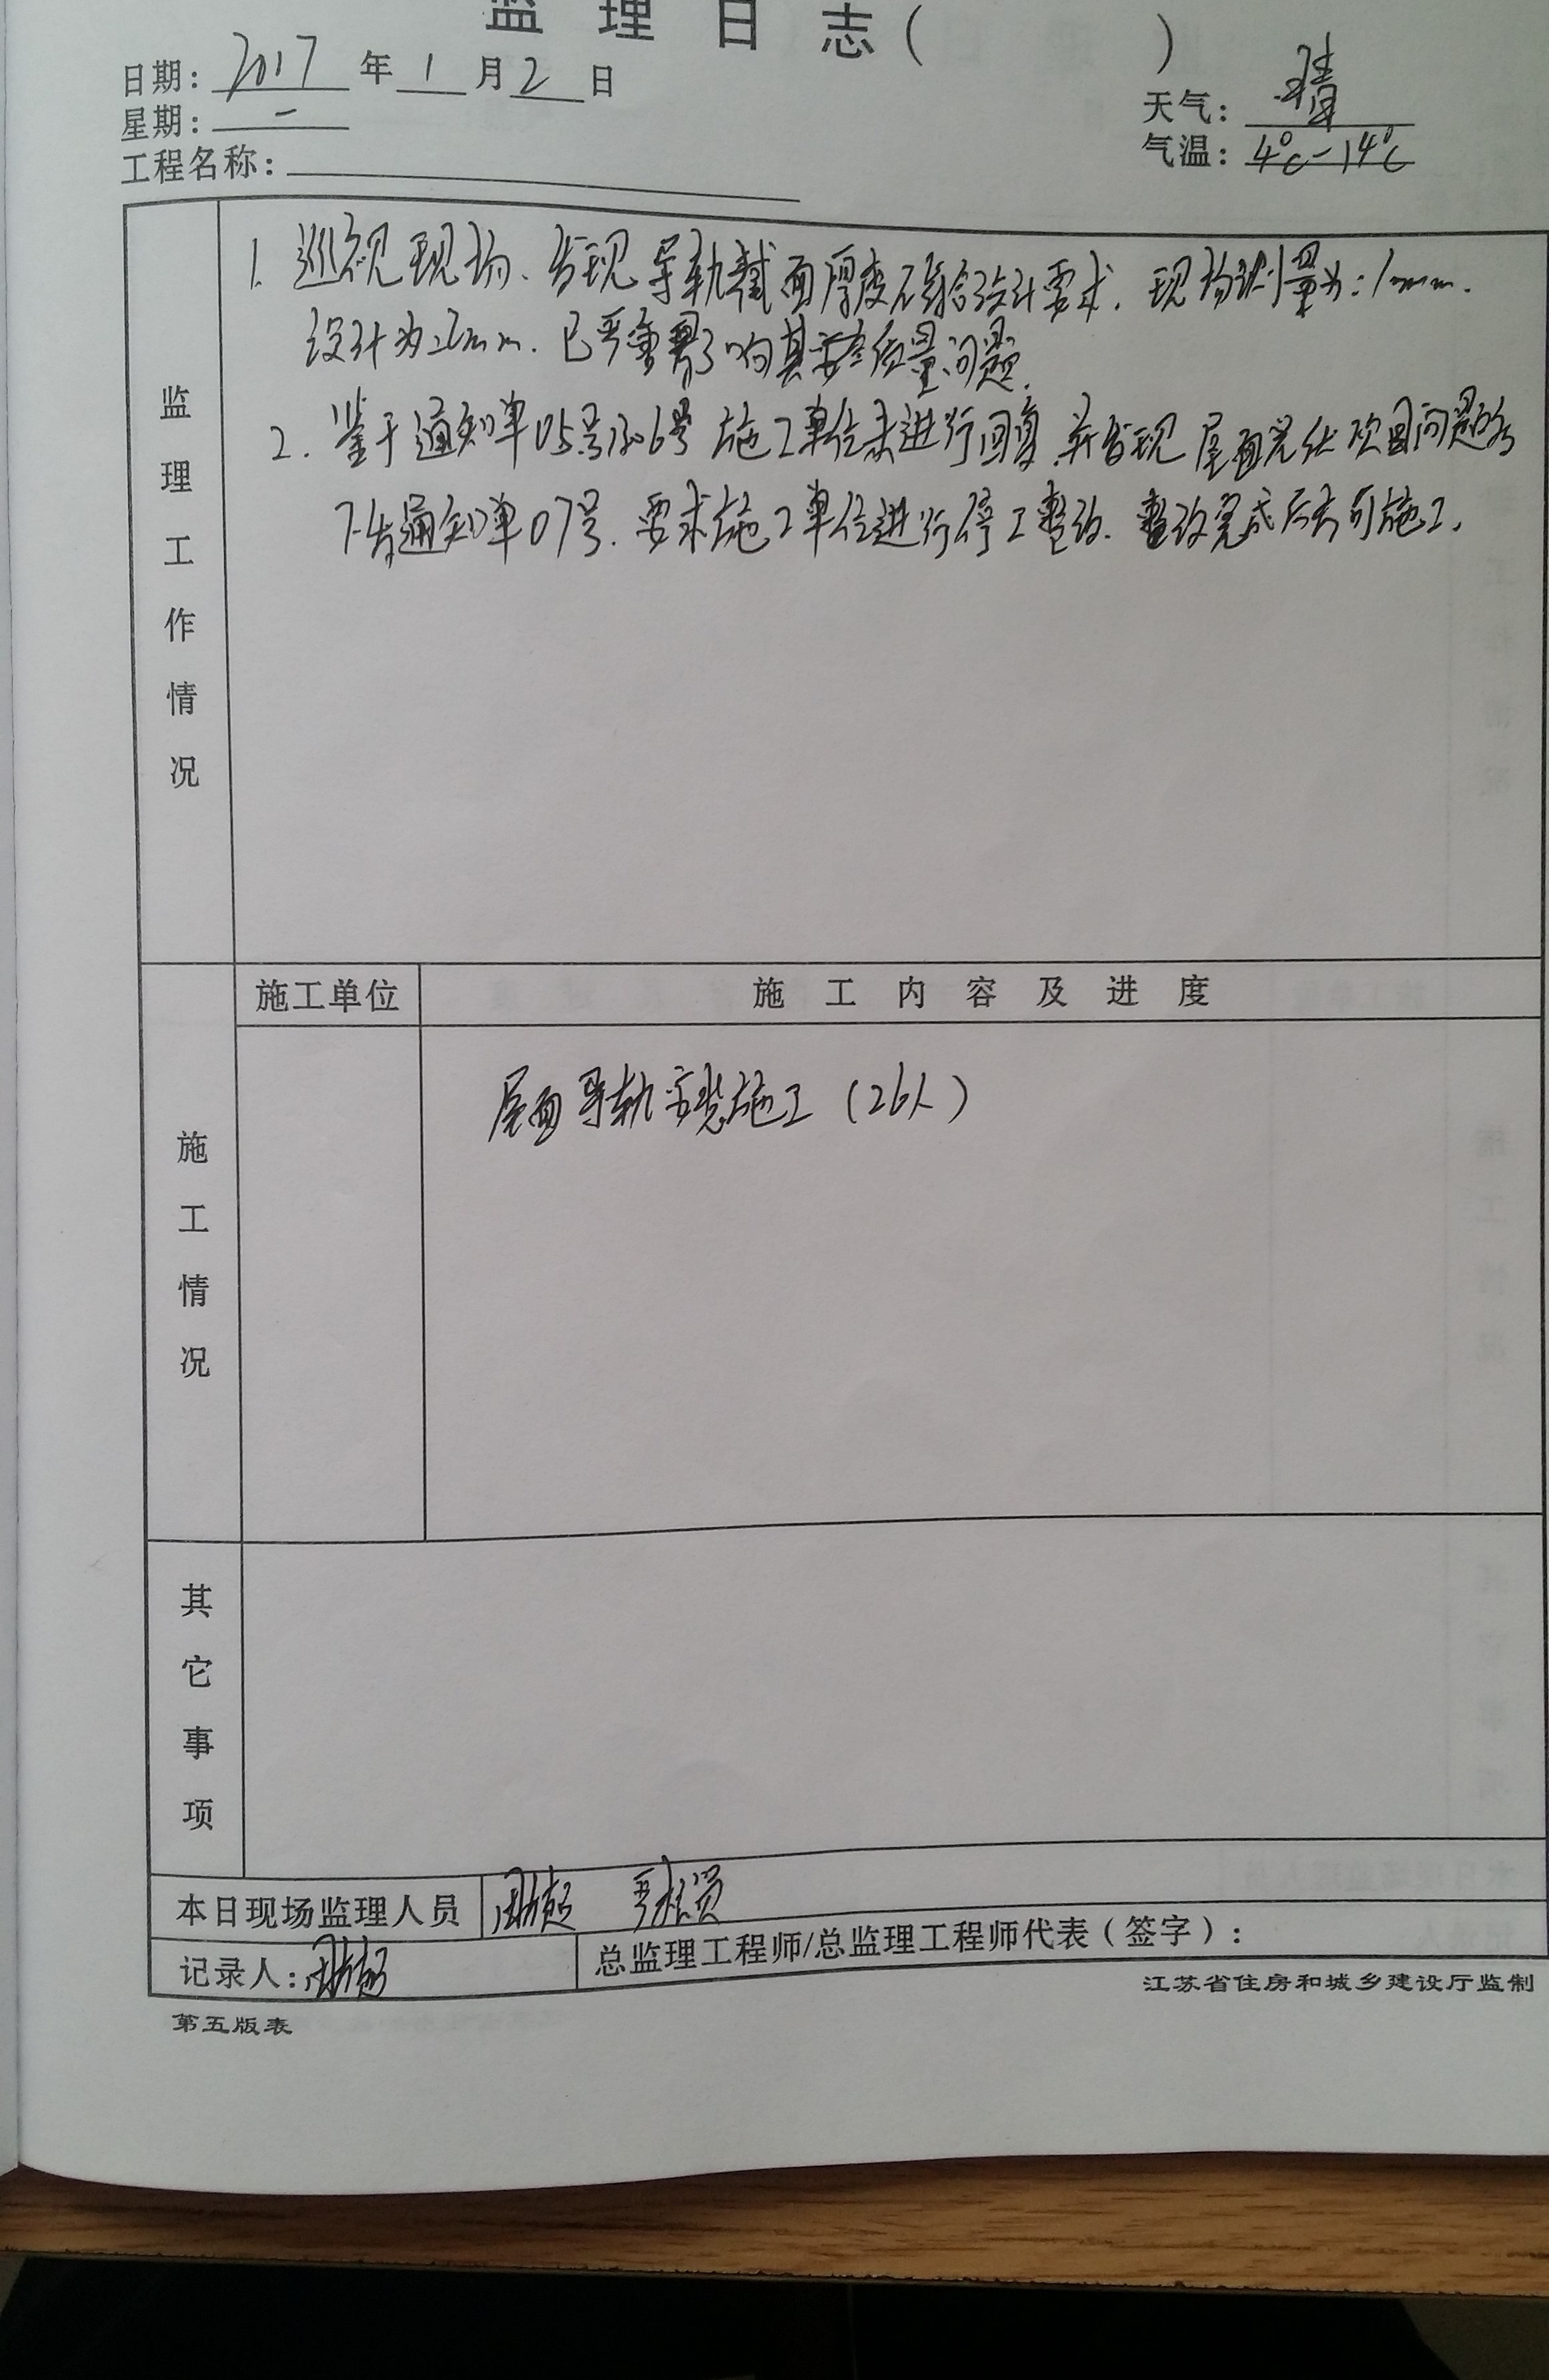 监理日志（ ）
日期：2017年1月2日
天气：晴
星期：一
气温：4℃-14℃
工程名称：
监理工作情况
1. 巡视现场、发现导轨截面厚度不符合设计要求. 现场测量为:1mm.
设计为2mm. 已严重影响其安全质量问题.
2. 鉴于通知单05号和06号施工单位未进行回复.并发现屋面光伏项目问题多
下发通知单07号.要求施工单位进行停工整改.整改完成后方可施工.
施工单位
施工内容及进度
施工情况
屋面导轨安装施工(26人)
其它事项
本日现场监理人员
记录人：
总监理工程师/总监理工程师代表（签字）：
江苏省住房和城乡建设厅监制
第五版表